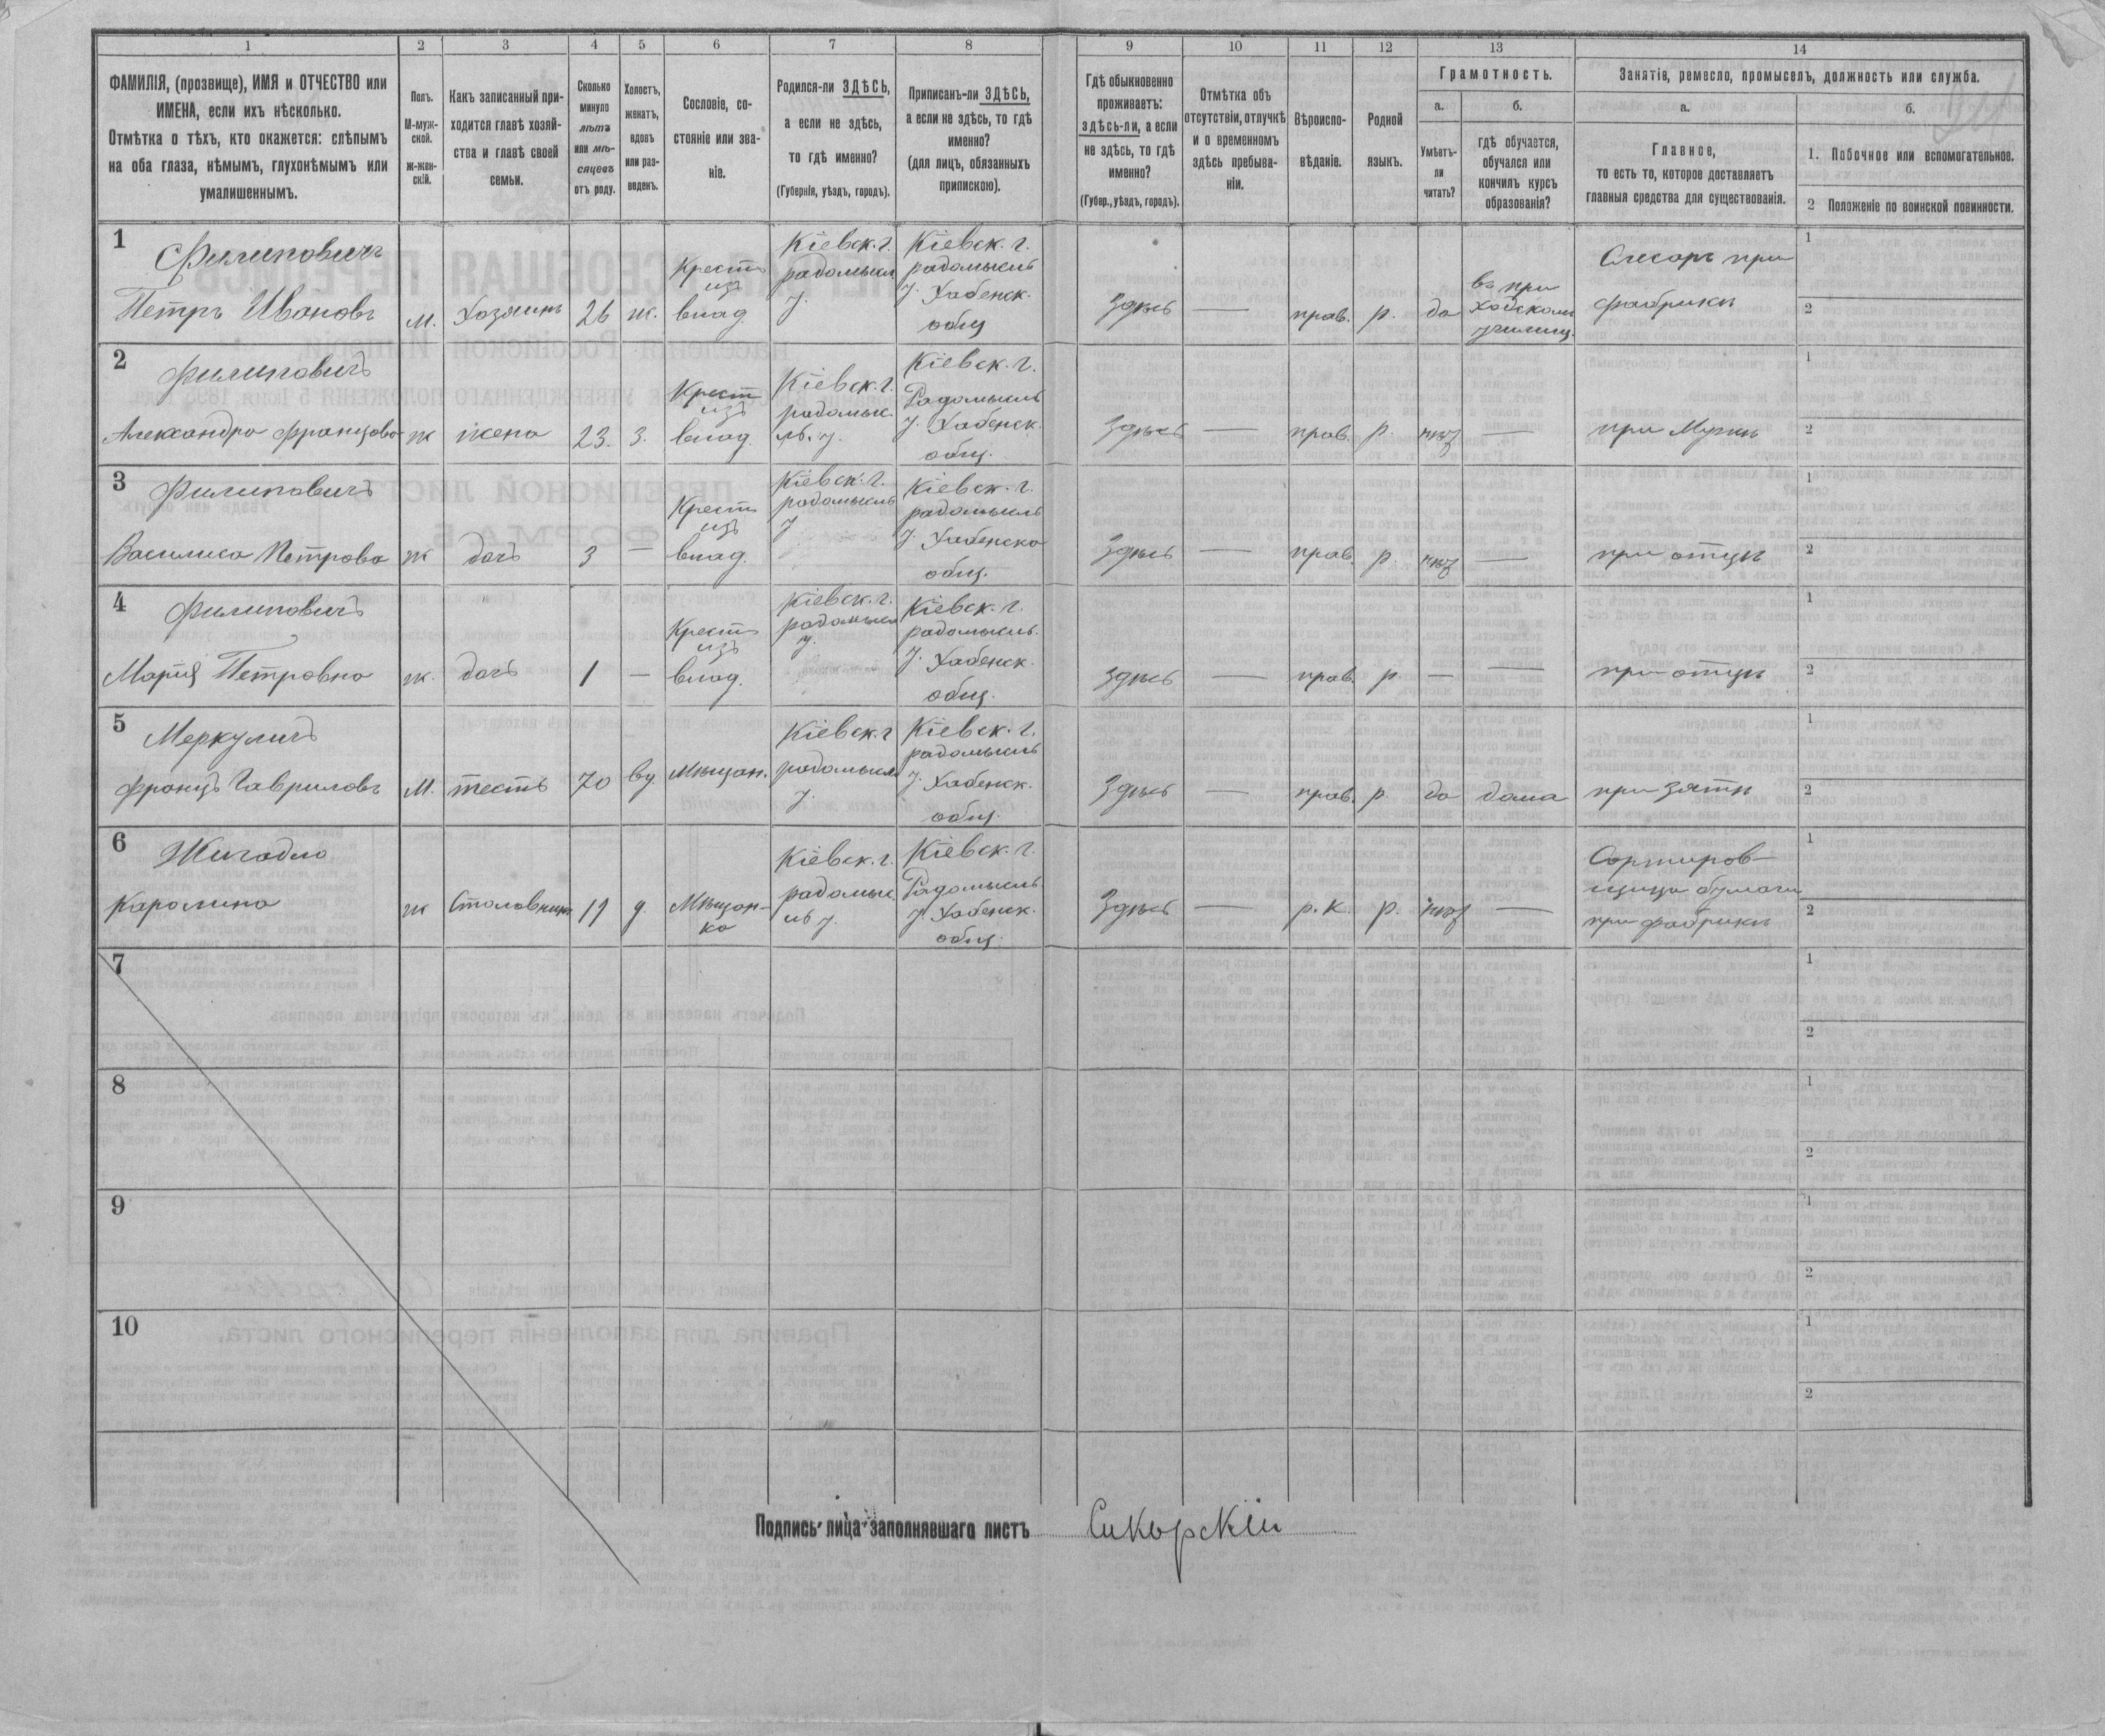 1 2 3 4 5 6 7 8 9 10 11 12 13 14
ФАМИЛІЯ, (прозвище), ИМЯ и ОТЧЕСТВО или
ИМЕНА, если ихъ нѣсколько.
Отмѣтка о тѣхъ, кто окажется: слѣпымъ
на оба глаза, нѣмымъ, глухонѣмымъ или
умалишеннымъ.
Полъ.
М-муж-
ской.
ж-жен-
скій.
Какъ записанный при-
ходится главѣ хозяй-
ства и главѣ своей
семьи.
Сколько
минуло
лѣтъ
или мѣ-
сяцевъ
отъ роду.
Холостъ,
женатъ,
вдовъ
или раз-
веденъ.
Сословіе, со-
стояніе или зва-
ніе.
Родился-ли ЗДѢСЬ,
а если не здѣсь,
то гдѣ именно?
(Губернія, уѣздъ, городъ).
Приписанъ-ли ЗДѢСЬ,
а если не здѣсь, то гдѣ
именно?
(для лицъ, обязанныхъ
припискою).
Гдѣ обыкновенно
проживаетъ:
здѣсь-ли, а если
не здѣсь, то гдѣ
именно?
(Губер., уѣздъ, городъ).
Отмѣтка объ
отсутствіи, отлучкѣ
и о временномъ
здѣсь пребыва-
ніи.
Вѣроиспо-
вѣданіе.
Родной
языкъ.
Грамотность.
а.
Умѣетъ-
ли
читать?
б.
гдѣ обучается,
обучался или
кончилъ курсъ
образованія?
Занятіе, ремесло, промыселъ, должность или служба.
а.
Главное,
то есть то, которое доставляетъ
главныя средства для существованія.
б.
1. Побочное или вспомогательное.
2 Положеніе по воинской повинности.
1
Филиповичъ
Петръ Ивановъ
М.
Хозяинъ
26
ж.
Крест
изъ
влад.
Кіевск. г.
радомысл
у.
Кіевск. г.
радомысль
у. Хабенск.
общ
Здѣсь
—
прав.
р.
да
въ при
ходском
училищ.
Слесарь при
фабрики
1
2
2
Филиповичъ
Александра Францова
ж
жена
23.
з.
Крест
изъ
влад.
Кіевск. г.
радомыс
ль. у.
Кіевск. г.
Радомысль
у. Хабенск.
общ.
Здѣсь
—
прав.
р.
—
при Мужи
1
2
3
Филиповичъ
Василиса Петрова
ж
дочъ
3
—
Крест
изъ
влад.
Кіевск. г.
радомысль
у
Кіевск. г.
радомысль
у. Хабенска
общ.
Здѣсь
—
прав.
р.
—
при отцы
1
2
4
Филиповичъ
Марія Петровна
ж.
дочъ
1
—
Крест
изъ
влад.
Кіевск. г.
радомысл
у.
Кіевск. г.
радомысль.
у. Хабенск.
общ.
Здѣсь
—
прав.
р.
—
—
при отцы
1
2
5
Меркуличъ
Францъ Гавриловъ
М.
тесть
70
ву
Мѣщан.
Кіевск. г
радомысл
у.
Кіевск. г.
радомысль
у. Хабенск.
общ.
Здѣсь
—
прав.
р.
да
дома
при зяти
1
2
6
Жигадло
Каролина
ж
19
д.
Мѣщан-
ка
Кіевск. г.
радомыс
ль у.
Кіевск. г.
Радомысль
у. Хабенск.
общ.
Здѣсь
—
р. к.
р.
—
Сортиров-
щица бумаги
при фабрики
1
2
7
1
2
8
1
2
9
1
2
10
1
2
Подпись лица заполнявшаго листъ Сикорскій